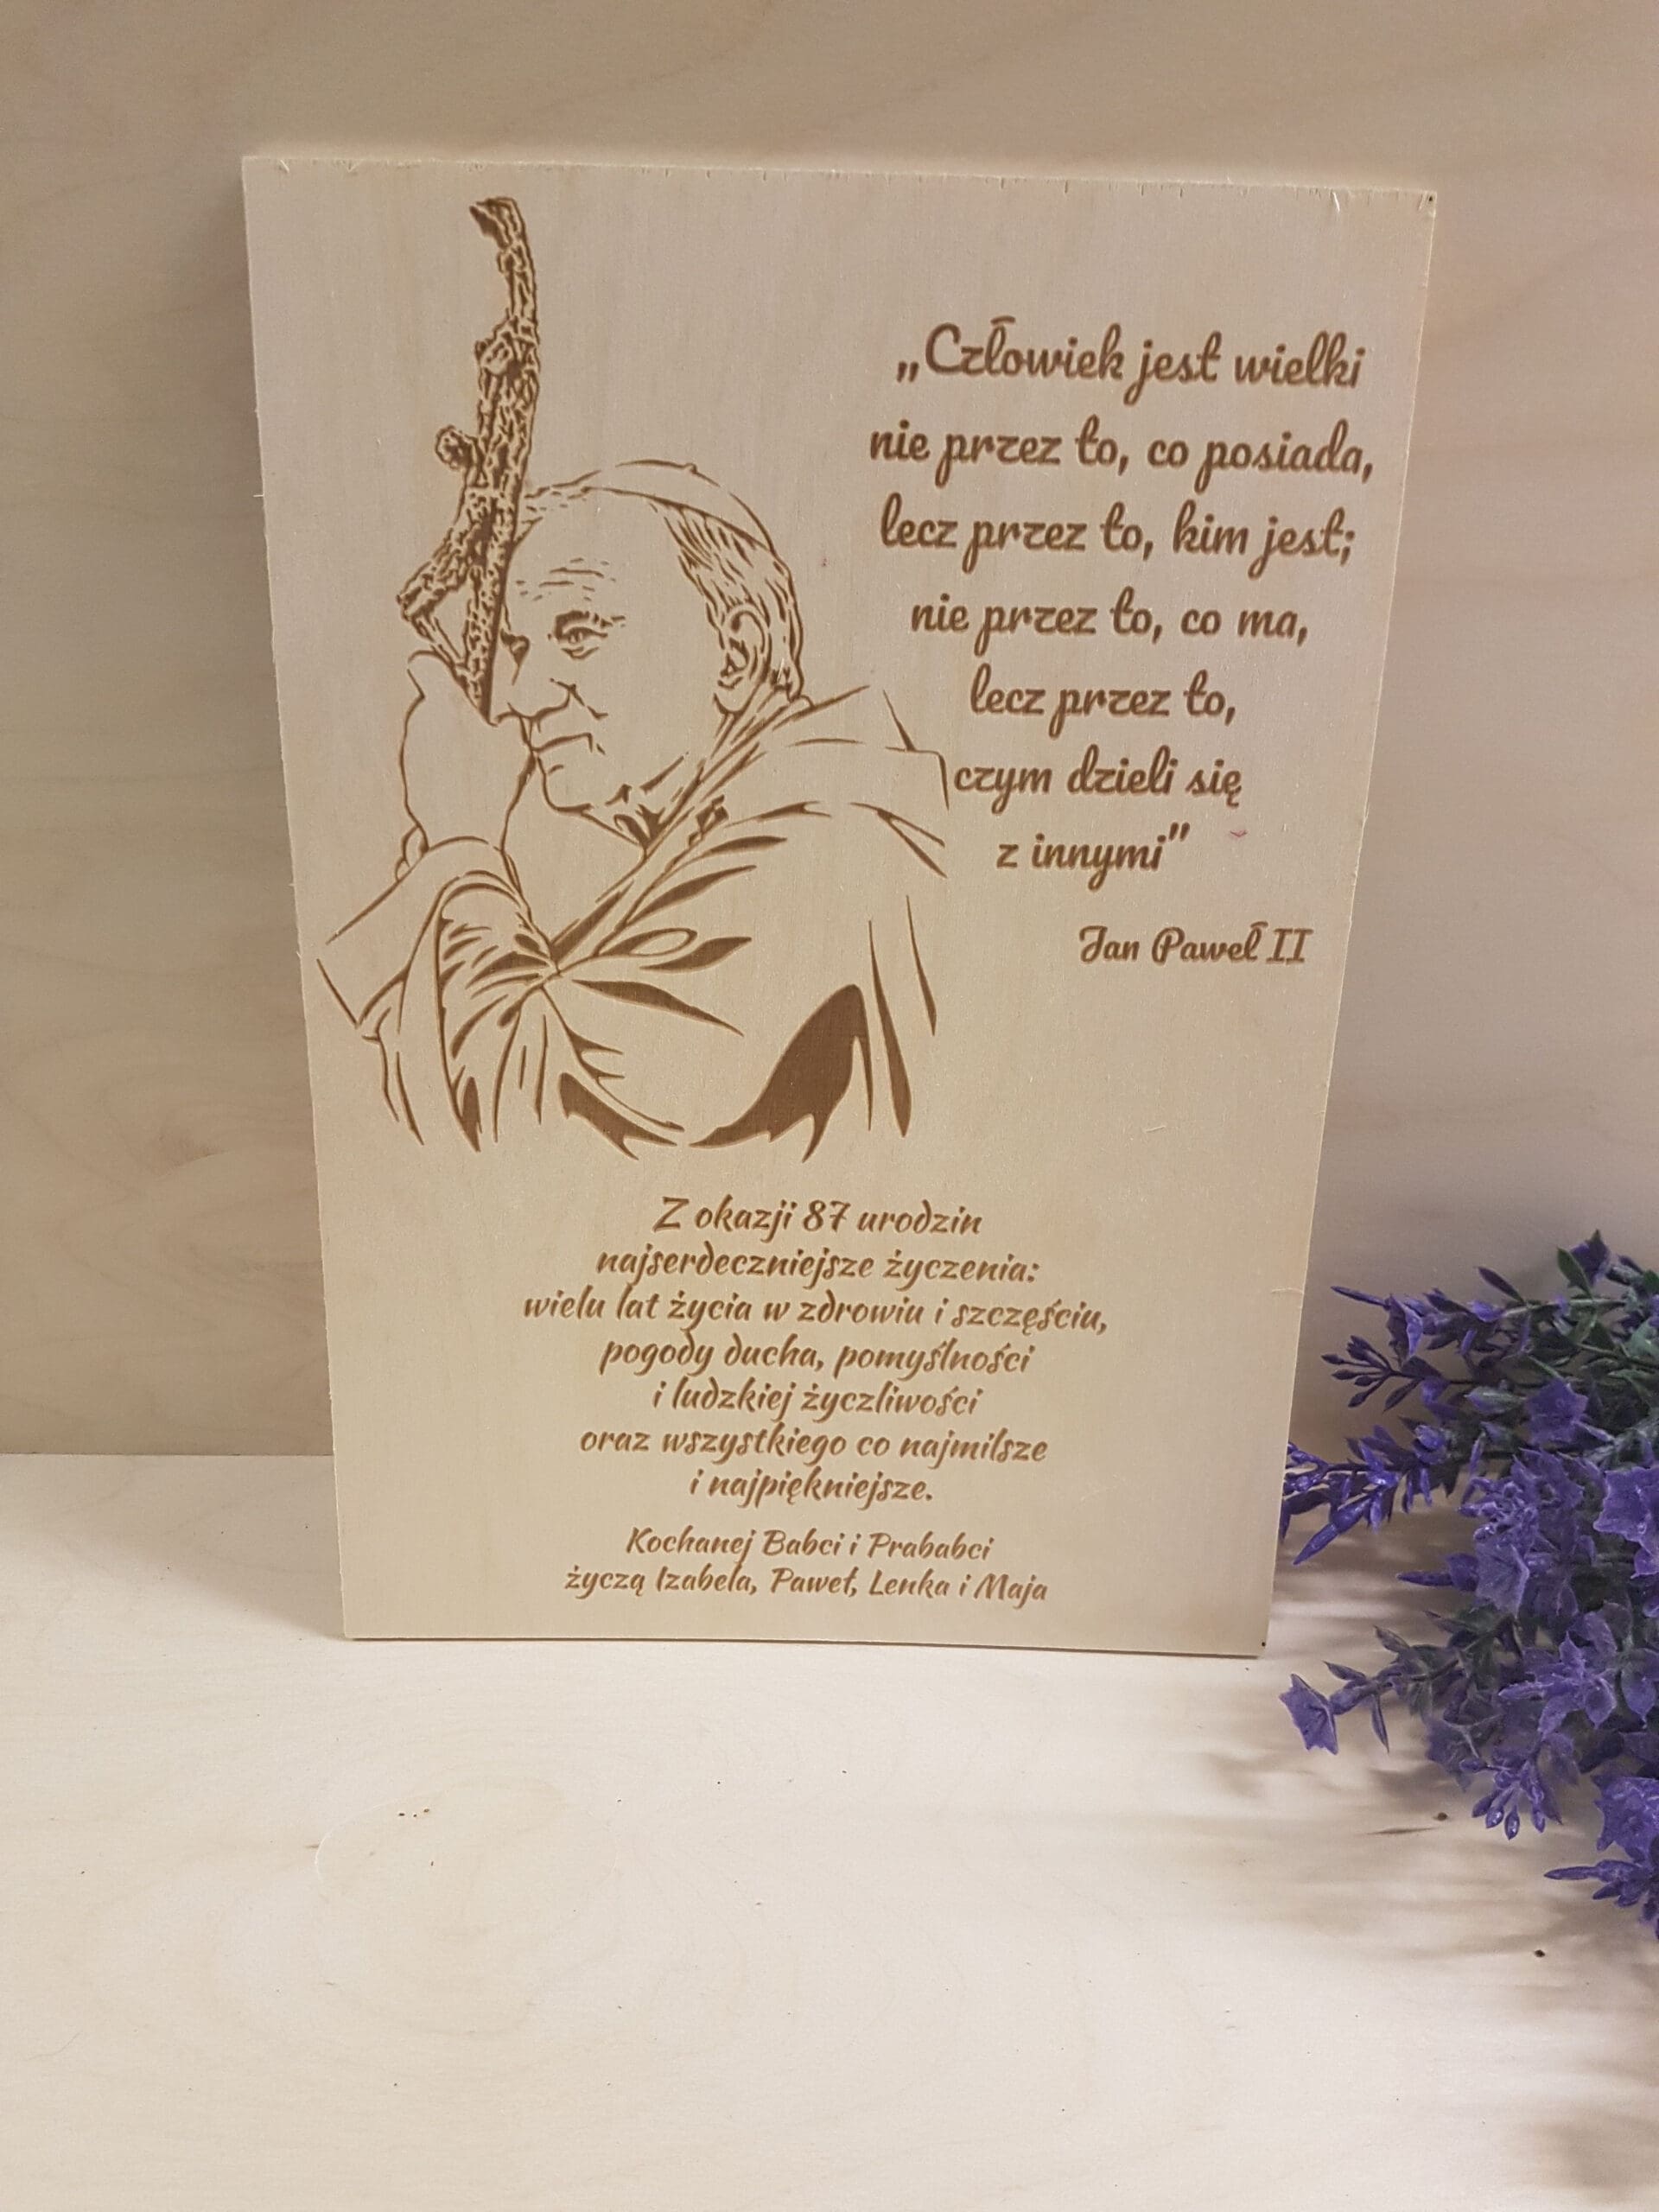 „Człowiek jest wielki
nie przez to, co posiada,
lecz przez to, kim jest;
nie przez to, co ma,
lecz przez to,
czym dzieli się
z innymi"
Jan Paweł II
Z okazji 87 urodzin
najserdeczniejsze życzenia:
wielu lat życia w zdrowiu i szczęściu,
pogody ducha, pomyślności
i ludzkiej życzliwości
oraz wszystkiego co najmilsze
i najpiękniejsze.
Kochanej Babci i Prababci
życzą Izabela, Paweł, Lenka i Maja